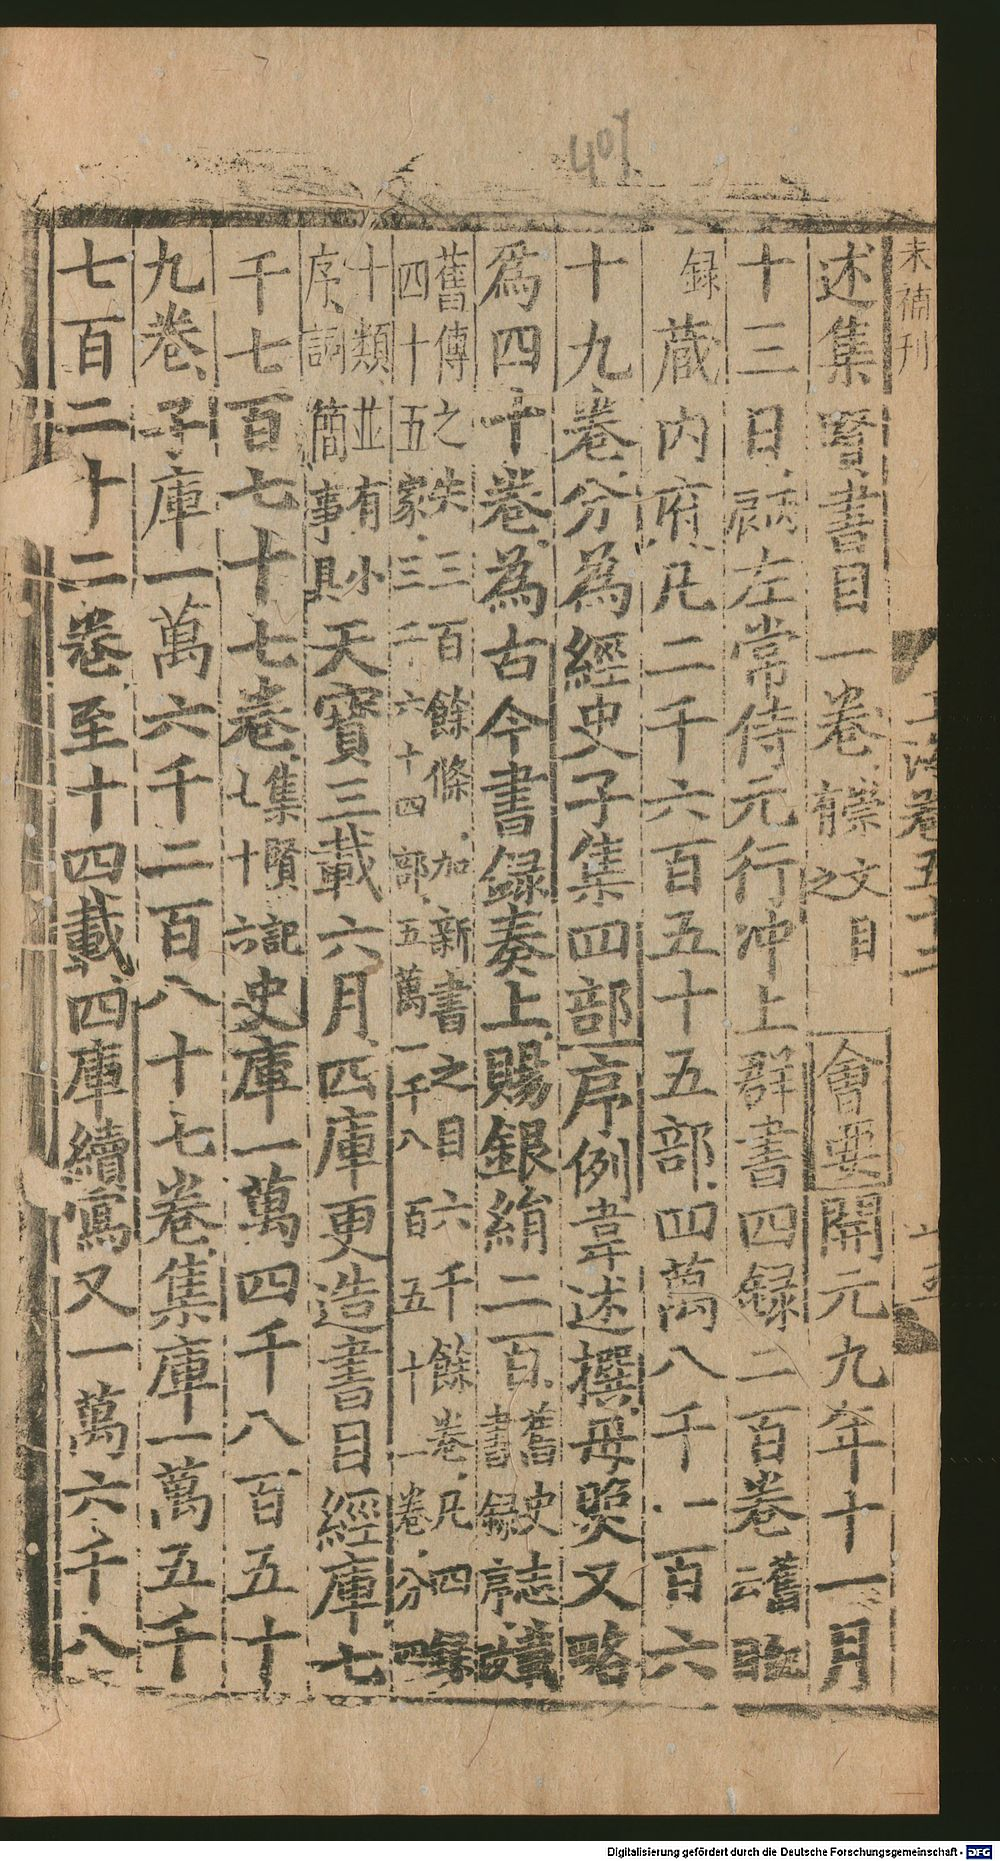 40
未補刊
玉海卷五十二
十五
述集賢書目一卷標文目之會要開元九年十一月
十三日左常侍元行沖上群書四録二百卷舊云
録藏内府凡二千六百五十五部四萬八千一百六
十九卷分為經史子集四部序例韋述撰毋煚又略
為四十卷為古今書録奏上賜銀絹二百舊史志書録序
舊傳之失三百餘條加新書之目六千餘卷凡四録四十五家三千六十四部五萬一千八百五十一卷分
十類並有小序詞簡事具天寶三載六月四庫更造書目經庫七
千七百七十七卷集賢記七十六史庫一萬四千八百五十
九卷子庫一萬六千二百八十七卷集庫一萬五千
七百二十二卷至十四載四庫續寫又一萬六千八
Digitalisierung gefördert durch die Deutsche Forschungsgemeinschaft - DFG